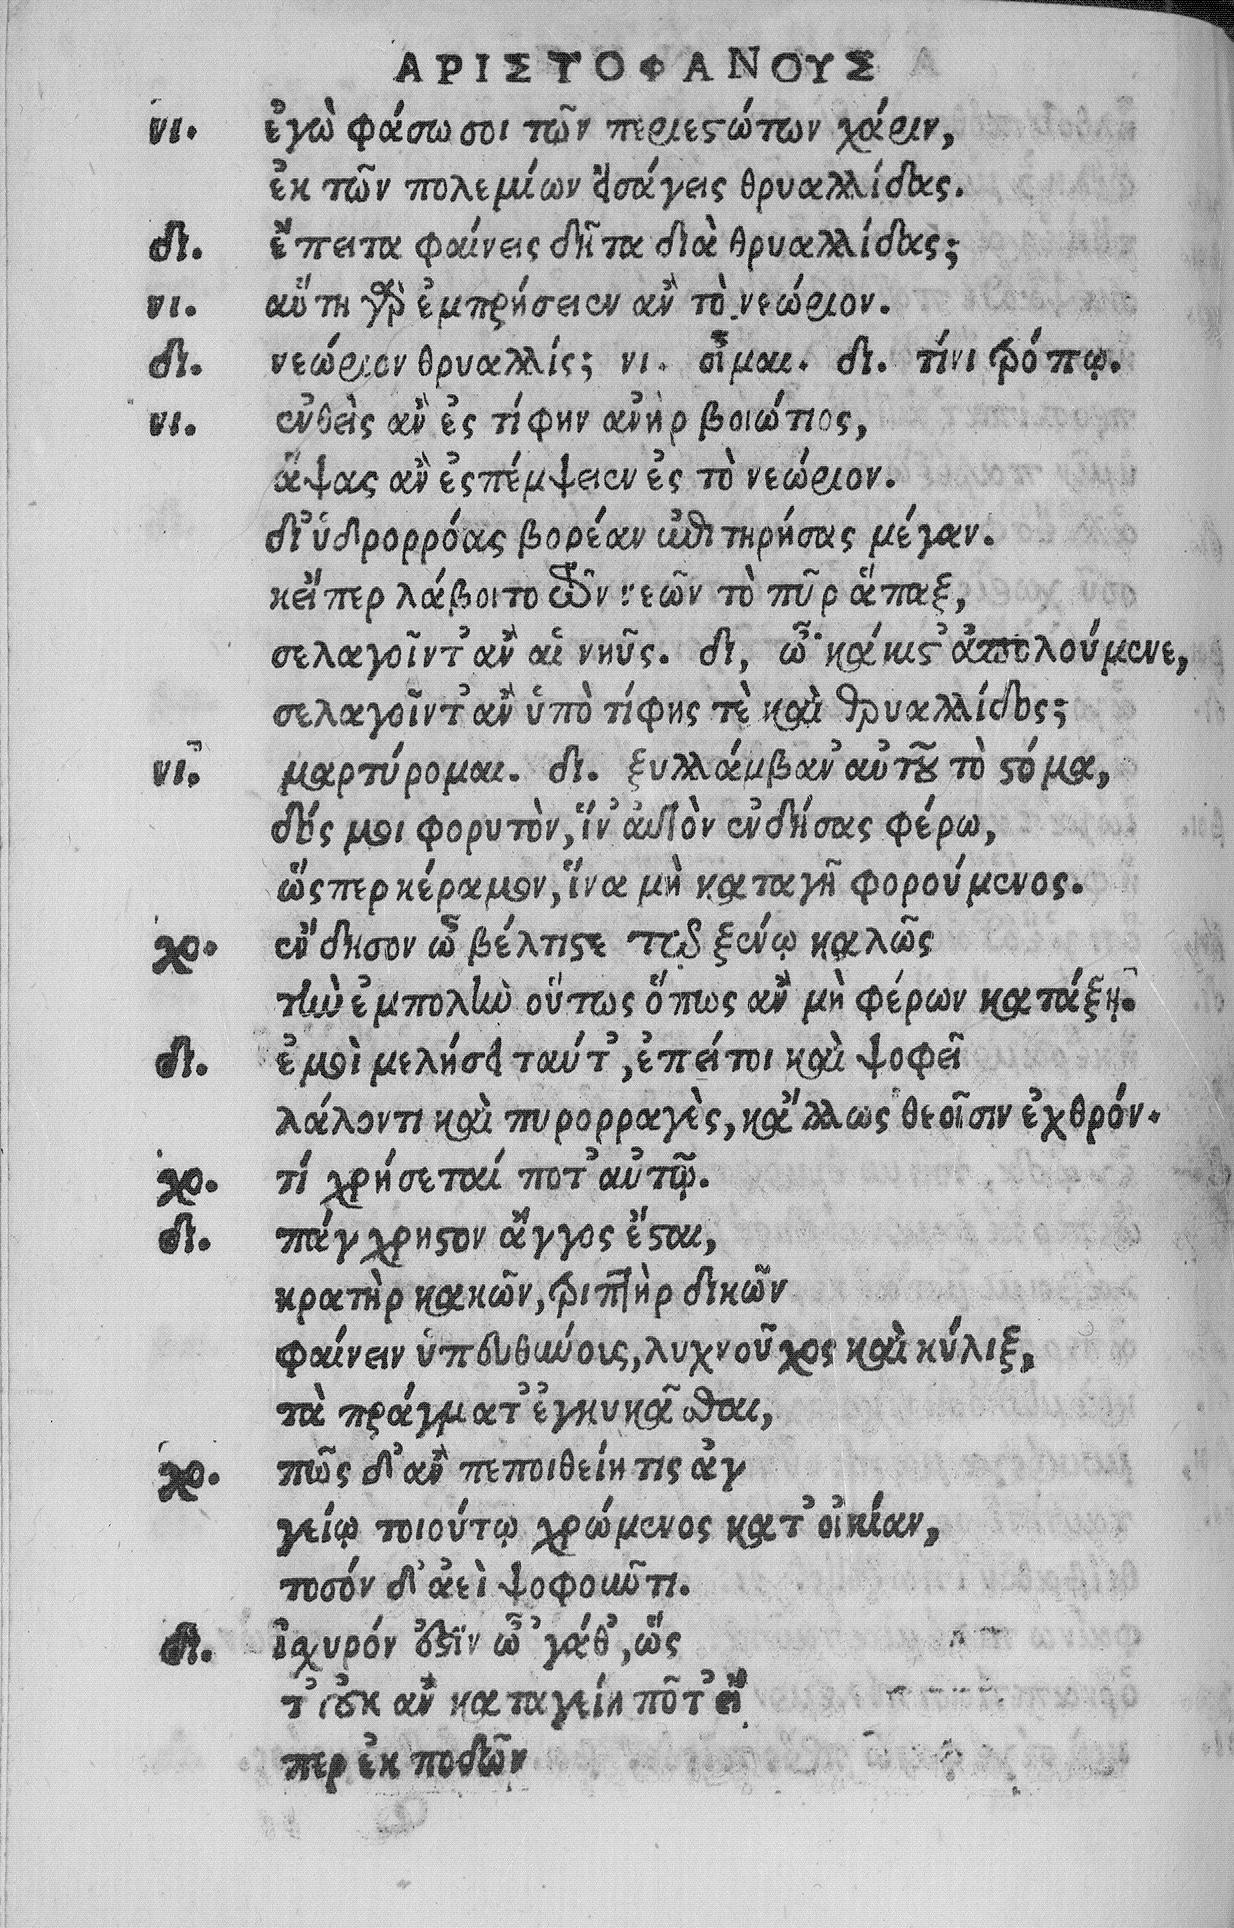 ΑΡΙΣΤΟΦΑΝΟΥΣ
νι. ἐγὼ φάσω σοι τῶν περιεστώτων χάριν,
ἐκ τῶν πολεμίων εἰσάγεις θρυαλλίδας.
δι. ἔπειτα φαίνεις δῆτα διὰ θρυαλλίδας;
νι. αὕτη γὰρ ἐμπρήσειεν ἂν τὸ νεώριον.
δι. νεώριον θρυαλλίς; νι. οἶμαι. δι. τίνι τρόπῳ.
νι. ἐνθεὶς ἂν ἐς τίφην ἀνὴρ βοιώτιος,
ἅψας ἂν ἐσπέμψειεν ἐς τὸ νεώριον.
δι' ὑδρορρόας βορέαν ἐπιτηρήσας μέγαν.
κεἴπερ λάβοιτο τῶν νεῶν τὸ πῦρ ἅπαξ,
σελαγοῖντ' ἂν αἱ νηῦς. δι, ὦ κάκιστ' ἀπολούμενε,
σελαγοῖντ' ἂν ὑπὸ τίφης τὲ καὶ θρυαλλίδος;
νι. μαρτύρομαι. δι. ξυλλάμβαν' αὐτοῦ τὸ στόμα,
δός μοι φορυτὸν, ἵν' αὐτὸν ἐνδήσας φέρω,
ὥσπερ κέραμον, ἵνα μὴ καταγῇ φορούμενος.
χο. ἔνδησον ὦ βέλτιστε τῷ ξένῳ καλῶς
τὴν ἐμπολὴν οὕτως ὅπως ἂν μὴ φέρων κατάξῃ.
δι. ἐμοὶ μελήσει ταύτ', ἐπείτοι καὶ ψοφεῖ
λάλον τι καὶ πυρορραγὲς, κἄλλως θεοῖσιν ἐχθρόν.
χο. τί χρήσεταί ποτ' αὐτῷ.
δι. πάγχρηστον ἄγγος ἔσται,
κρατὴρ κακῶν, τριπτὴρ δικῶν
φαίνειν ὑπευθύνοις, λυχνοῦχος καὶ κύλιξ,
τὰ πράγματ' ἐγκυκᾶσθαι,
χο. πῶς δ' ἂν πεποιθείη τις ἀγ
γείῳ τοιούτῳ χρώμενος κατ' οἰκίαν,
τοσόν δ' ἀεὶ ψοφοῦντι.
δι. ἰσχυρόν ἐστιν ὦ 'γάθ', ὥς
τ' οὐκ ἂν καταγείη πότ' εἴ
περ ἐκ ποδῶν